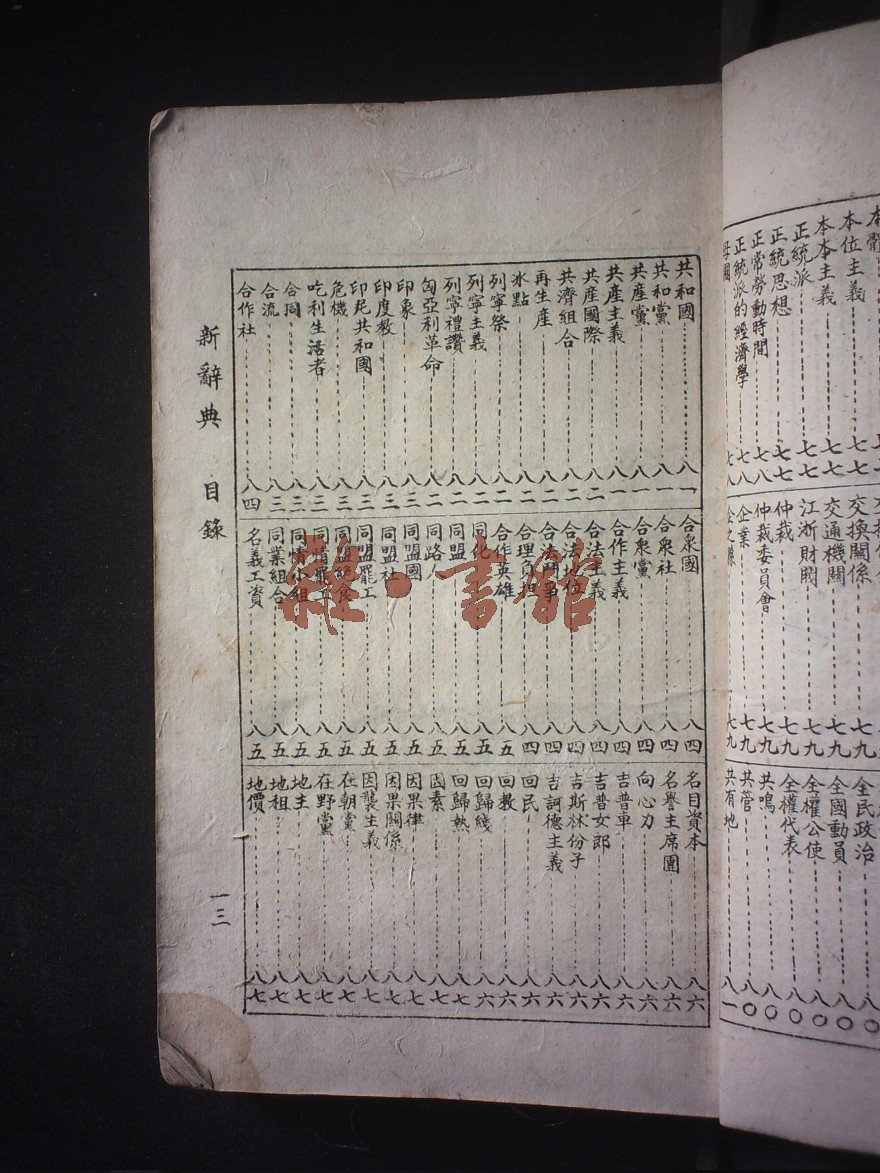 本位主義
本本主義
正統派
正統思想
正常勞動時間
正統派的經濟學
交換關係
交通機關
江浙財閥
仲裁
仲裁委員會
企業
全民政治
全國動員
全權公使
全權代表
共鳴
共管
共有地
共和國 八一
共和黨 八一
共產黨 八一
共產主義 八一
共產國際 八二
共濟組合 八二
再生產 八二
冰點 八二
列寧祭 八二
列寧主義 八二
列寧禮讚 八二
匈亞利革命 八二
印象 八三
印度教 八三
印尼共和國 八三
危機 八三
吃利生活者 八三
合同 八三
合流 八三
合作社 八四
合衆國 八四
合衆社 八四
合衆黨 八四
合作主義 八四
合法主義 八四
合法地位 八四
合法鬥爭 八四
合理負担 八四
合作英雄 八五
同化 八五
同盟 八五
同路人 八五
同盟國 八五
同盟社 八五
同盟罷工 八五
同盟絶食 八五
同情罷工 八五
同情小組 八五
同業組合 八五
名義工資 八五
名目資本 八六
名譽主席團 八六
向心力 八六
吉普車 八六
吉普女郎 八六
吉斯林份子 八六
吉訶德主義 八六
回民 八六
回教 八六
回歸綫 八六
回歸熱 八七
因素 八七
因果律 八七
因果關係 八七
因襲主義 八七
在朝黨 八七
在野黨 八七
地主 八七
地租 八七
地價 八七
新辭典 目錄
一三
雜·書館